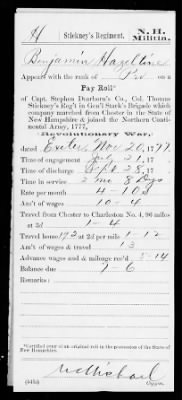 H
Stickney's Regiment.
N. H.
Militia.
Benjamin Hazeltine
Appears with the rank of Pvt on a
Pay Roll*
of Capt. Stephen Dearborn's Co., Col. Thomas
Stickney's Reg't in Gen'l Stark's Brigade which
company marched from Chester in the State of
New Hampshire & joined the Northern Conti-
nental Army, 1777,
Revolutionary War,
dated Exeter, Nov 20, 1777
Time of engagement July 21, 17
Time of discharge Sept 28, 17
Time in service 2 mo 8 Dys
Rate per month 4-10s
Am't of wages 10-4
Travel from Chester to Charleston No. 4, 96 miles
at 3d 1-4
Travel home 193 at 2d per mile 1-12
Am't of wages & travel 13
Advance wages and & mileage rec'd 5-14
Balance due 7-6
Remarks:
*Certified copy of an original roll in the possession of the State of
New Hampshire.
McMichael
Copyist.